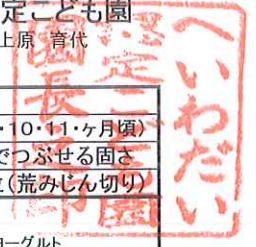 定こども園
上原 育代
・10・11・ヶ月頃)
でつぶせる固さ
(荒みじん切り)
ヨーグルト
へいわだい
定こども園
園長之印